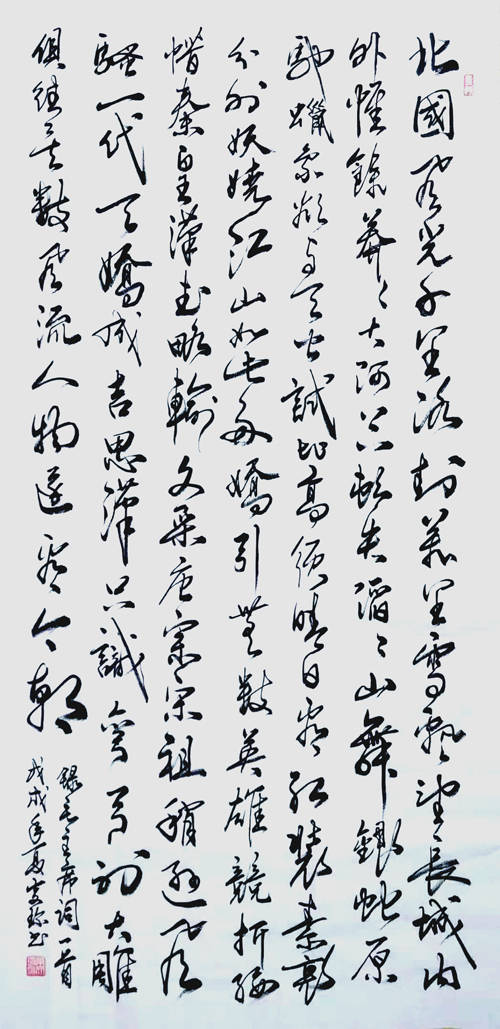 北國風光千里冰封萬里雪飄望長城内
外惟餘莽々大河上下頓失滔々山舞銀蛇原
馳蠟象欲與天公試比高須晴日看紅裝素裹
分外妖嬈江山如此多嬌引無數英雄競折腰
惜秦皇漢武略輸文采唐宗宋祖稍遜風
騷一代天嬌成吉思漢只識彎弓射大雕
俱往矣數風流人物還看今朝
錄毛主席詞一首
戊戌年夏書